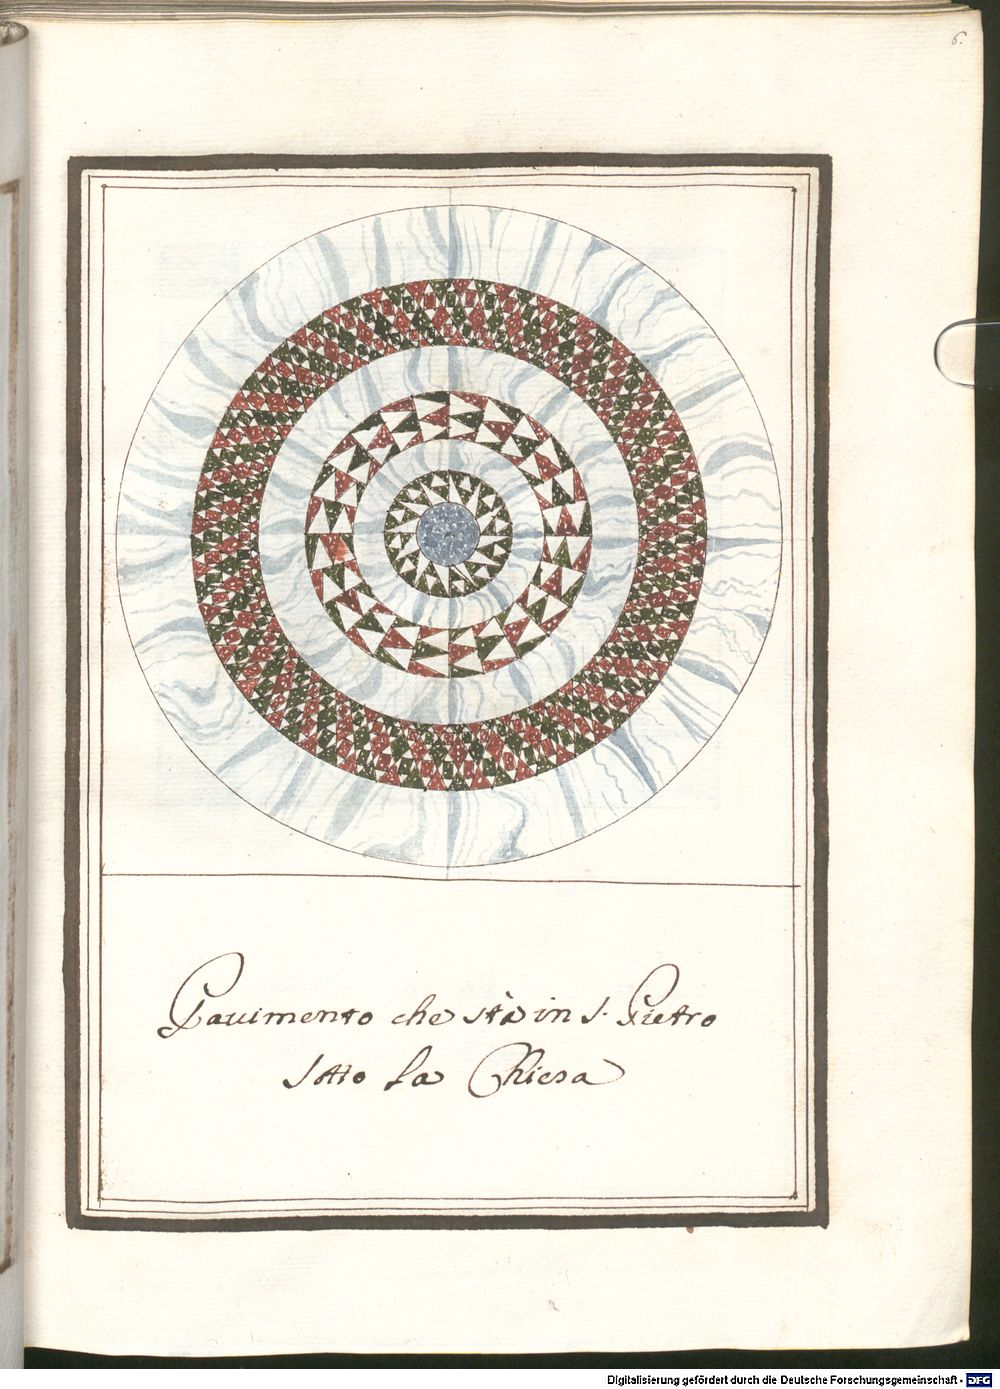 6.
Pauimento che stà in S. Pietro
sotto la Chiesa
Digitalisierung gefördert durch die Deutsche Forschungsgemeinschaft - DFG